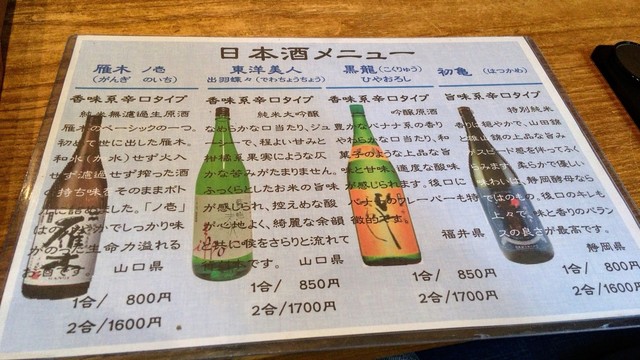 日本酒メニュー
雁木　ノ壱
（がんぎ　のいち）
香味系辛口タイプ
純米無濾過生原酒
雁木のベーシックの一つ。
初めて世に出した雁木。
和水（か水）せず火入
せず濾過せず搾った酒
の持ち味をそのままボト
ルに詰めました。「ノ壱」
しっかり味
生命力溢れる
お酒です。　山口県
1合/　800円
2合/1600円
東洋美人
出羽蝶々（でわちょうちょう）
香味系辛口タイプ
純米大吟醸
なめらかな口当たり、ジュ
ーシーで、程よい甘みと
柑橘系果実のような仄
かな苦みがたまりません。
ふっくらとしたお米の旨味
が感じられ、控えめな酸
が心地よく、綺麗な余韻
と共に喉をさらりと流れて
です。　山口県
1合/　850円
2合/1700円
黒龍（こくりゅう）
ひやおろし
香味系辛口タイプ
吟醸原酒
豊かなバナナ系の香り
やわらかな口当たり、和
菓子のような上品な旨
味と甘味、適度な酸味
が感じられます。後口に
バナナのフレーバーも特
徴的です。
福井県
1合/　850円
2合/1700円
初亀　（はつかめ）
旨味系辛口タイプ
特別純米
香り穏やかで、山田錦
と雄山錦の上品な旨み
がスピード感を伴ってふく
らみます。柔らかで優しい
味わいは、静岡酵母なら
ではのもの。後口のキレも
上々で、味と香りのバラン
スの良さが最高です。
静岡県
1合/　800円
2合/1600円